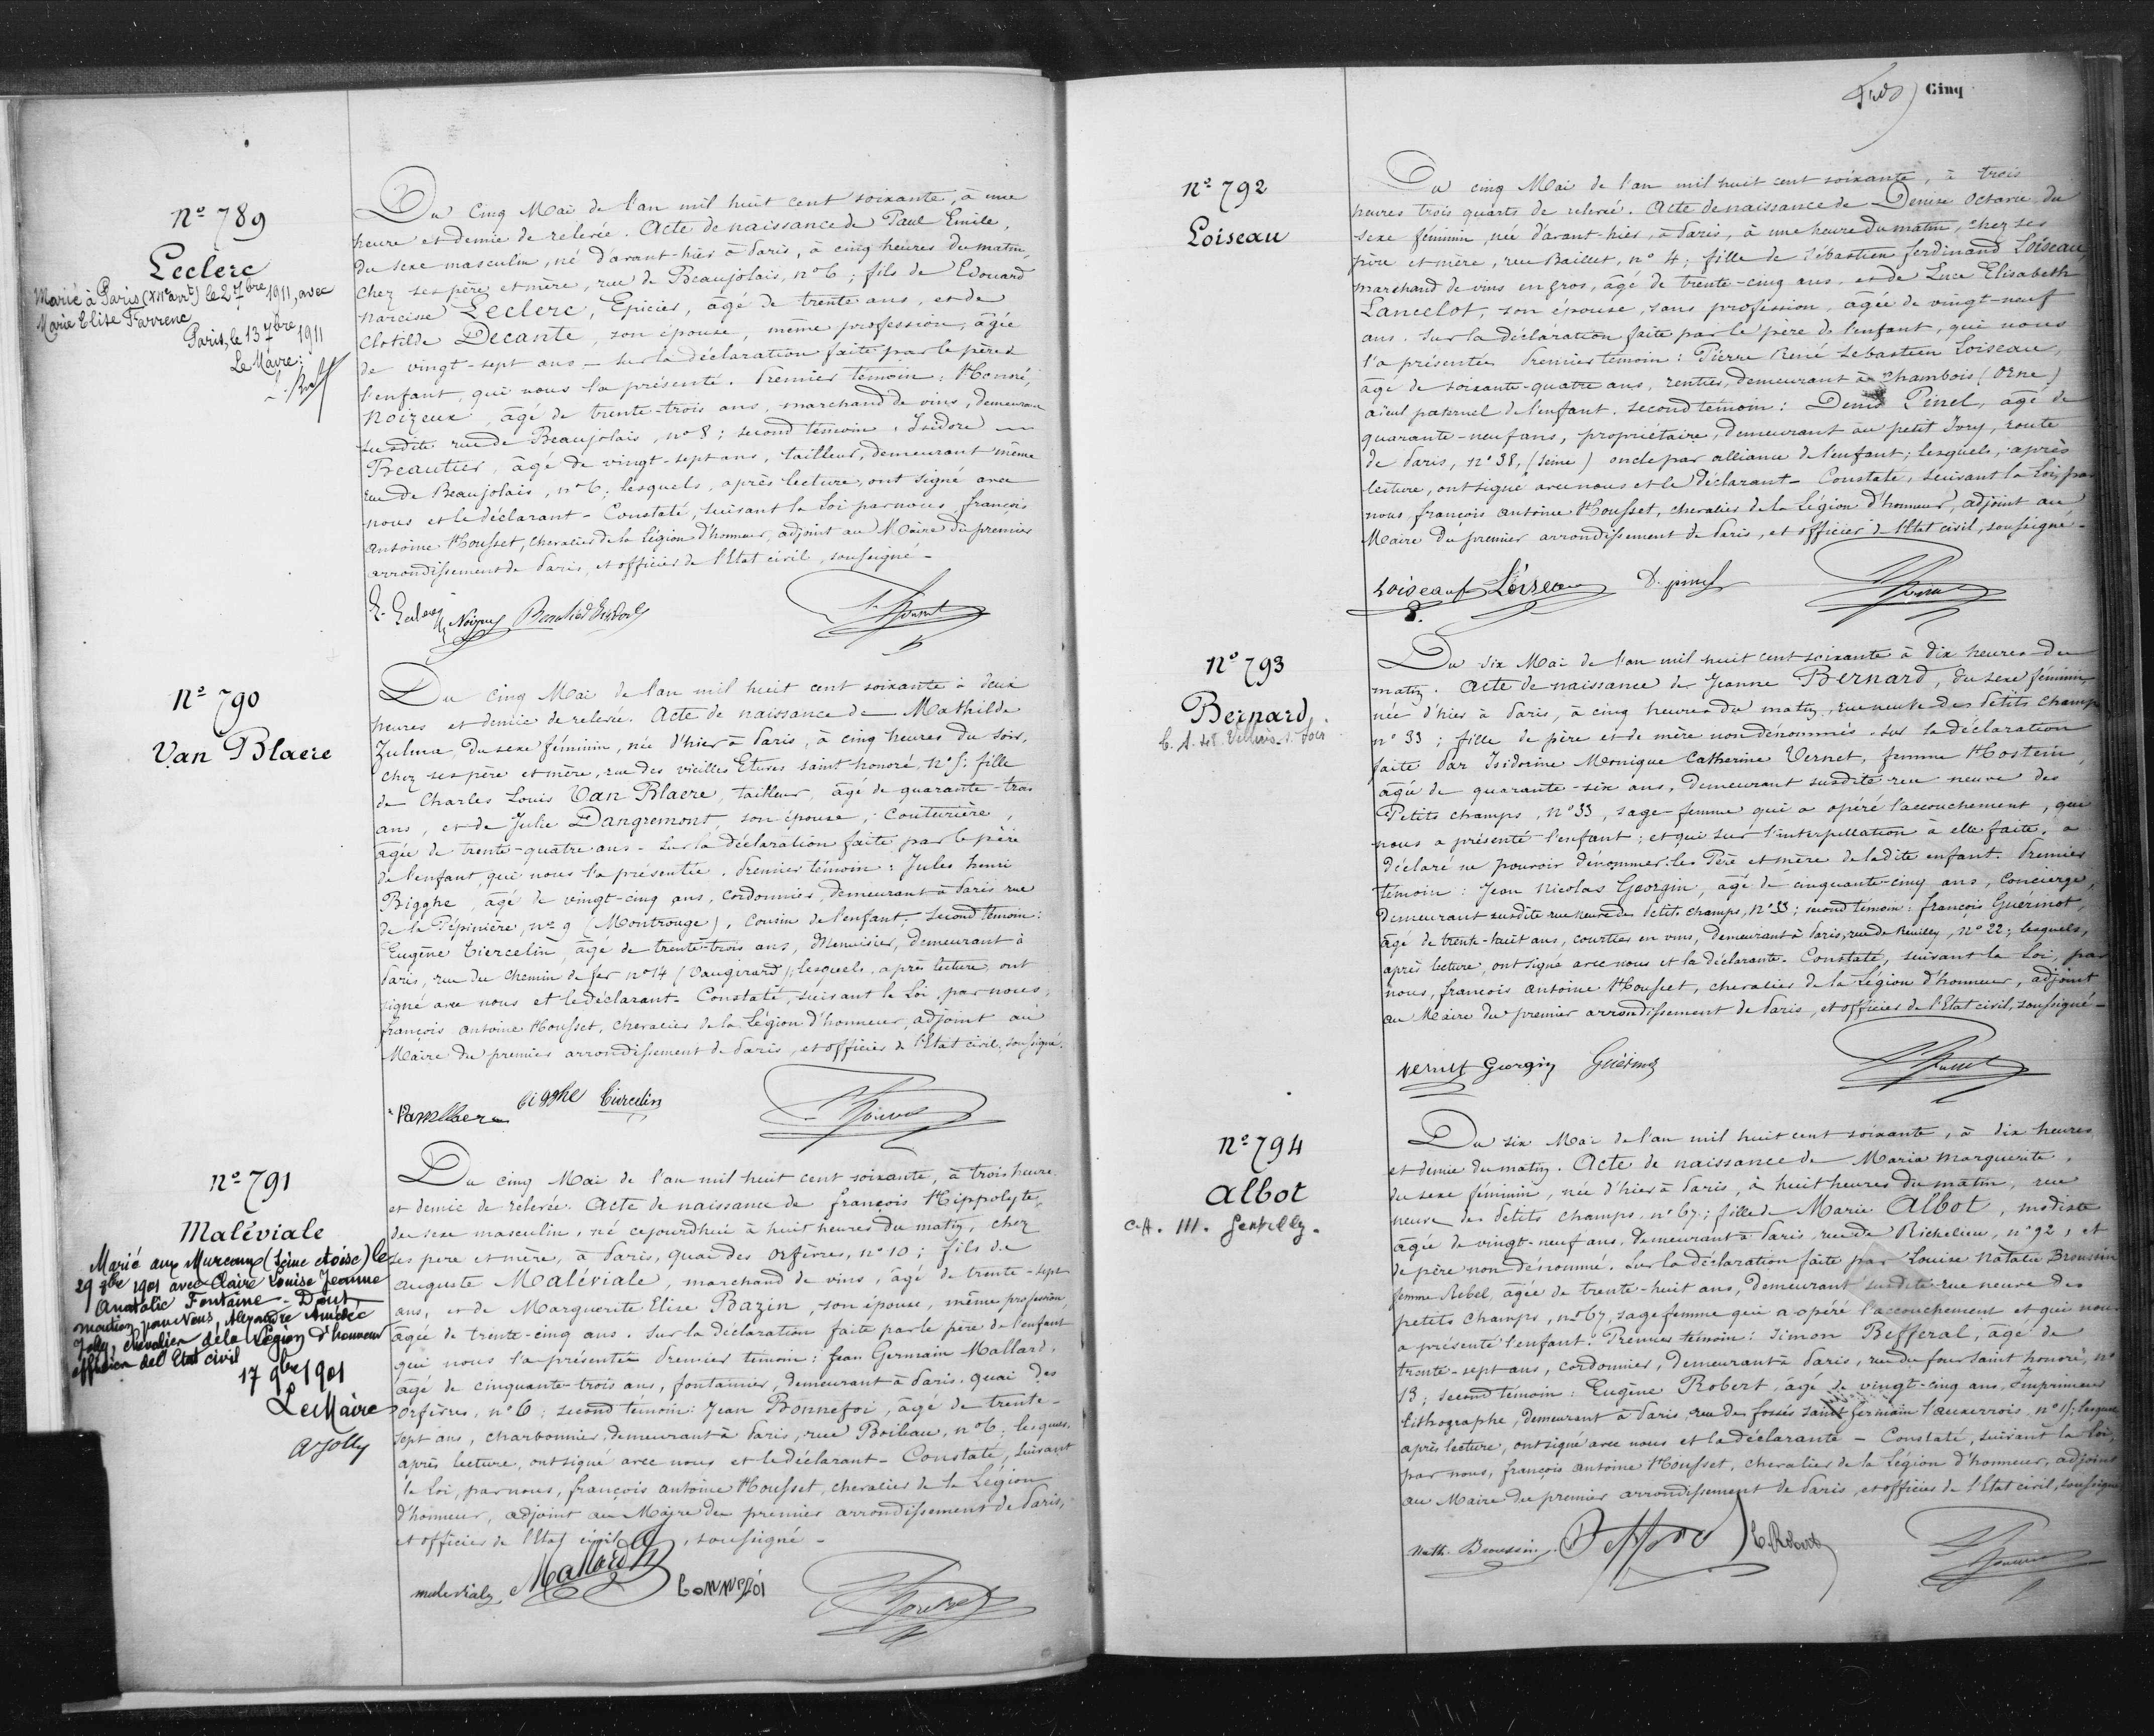 Nº 789
Leclerc
Marié à Paris (XIIe arrt) le 2 7bre 1911, avec
Marie Elise Farrenc
Paris, le 13 7bre 1911
Le Maire:
Du Cinq Mai de l'an mil huit cent soixante, à une
heure et demie de relevée. Acte de naissance de Paul Emile,
du sexe masculin, né d'avant-hier à Paris, à cinq heures du matin,
chez ses père et mère, rue de Beaujolais, nº 6; fils de Edouard
Narcisse Leclerc, Epicier, âgé de trente ans, et de
Clotilde Decante, son épouse, même profession, âgée
de vingt-sept ans — sur la déclaration faite par le père de
l'enfant, qui nous l'a présenté. Premier témoin: Honoré,
Noizeux, âgé de trente-trois ans, marchand de vins, demeurant
susdite rue de Beaujolais, nº 8; second témoin, Isidore
Beautier, âgé de vingt-sept ans, tailleur, demeurant même
rue de Beaujolais, nº 6; lesquels, après lecture, ont signé avec
nous et le déclarant - Constaté, suivant la Loi par nous, françois
antoine Housset, chevalier de la Légion d'honneur, adjoint au Maire du premier
arrondissement de Paris, et officier de l'Etat civil, soussigné -
Nº 790
Van Blaere
Du cinq Mai de l'an mil huit cent soixante à deux
heures et demie de relevée. Acte de naissance de Mathilde
Zulma, du sexe féminin, née d'hier à Paris, à cinq heures du soir,
chez ses père et mère, rue des vieilles Etuves saint honoré, nº 5: fille
de Charles Louis Van Blaere, tailleur, âgé de quarante-trois
ans, et de Julie Dangremont, son épouse, Couturière,
âgée de trente-quatre ans - sur la déclaration faite par le père
de l'enfant, qui nous l'a présentée. Premier témoin: Jules henri
Bigghe, âgé de vingt-cinq ans, cordonnier, demeurant à Paris rue
de la Pépinière, nº 9 (Montrouge), Cousin de l'enfant; second témoin:
Eugène Tiercelin, âgé de trente-trois ans, Menuisier, demeurant à
Paris, rue du Chemin de fer nº 14 (Vaugirard); lesquels, après lecture, ont
signé avec nous et le déclarant - Constaté, suivant la Loi, par nous,
françois antoine Housset, chevalier de la Légion d'honneur, adjoint au
Maire du premier arrondissement de Paris, et officier de l'Etat civil, soussigné.
Bigghe Tiercelin
Nº 791
Maléviale
Marié aux Mureaux (Seine et oise) le
29 8bre 1901 avec Claire Louise Jeanne
Anatolie Fontaine - Dont
mention par Nous, Alexandre Amédée
Jolly, chevalier de la Légion d'honneur
officier de l'Etat civil
17 9bre 1901
Le Maire
A Jolly
Du cinq Mai de l'an mil huit cent soixante, à trois heures
et demie de relevée. Acte de naissance de françois Hippolyte,
du sexe masculin, né cejourdhui à huit heures du matin, chez
ses père et mère, à Paris, quai des orfèvres, nº 10; fils de
auguste Maléviale, marchand de vins, âgé de trente-sept
ans, et de Marguerite Elise Bazin, son épouse, même profession,
âgée de trente-cinq ans. Sur la déclaration faite par le père de l'enfant
qui nous l'a présentée Premier témoin: Jean Germain Mallard,
âgé de cinquante-trois ans, fontainier, demeurant à Paris, quai des
orfèvres, nº 6; second témoin: Jean Bonnefoi, âgé de trente-
sept ans, charbonnier, demeurant à Paris, rue Boileau, nº 6; lesquels
après lecture, ont signé avec nous et le déclarant - Constaté, suivant
la Loi, par nous, françois antoine Housset, chevalier de la Légion
d'honneur, adjoint au Maire du premier arrondissement de Paris,
et officier de l'Etat civil, soussigné -
malevialle Mallard Bonnefoi
Cinq
Nº 792
Loiseau
Du cinq Mai de l'an mil huit cent soixante, à trois
heures trois quarts de relevée. Acte de naissance de Denise Octavie du
sexe féminin, née d'avant-hier, à Paris, à une heure du matin, chez ses
père et mère, rue Baillet, nº 4; fille de Sébastien ferdinand Loiseau,
marchand de vins en gros, âgé de trente-cinq ans, et de Luce Elisabeth
Lancelot, son épouse, sans profession, âgée de vingt-neuf
ans. Sur la déclaration faite par le père de l'enfant, qui nous
l'a présentée Premier témoin: Pierre René Sébastien Loiseau,
âgé de soixante-quatre ans, rentier, demeurant à Chambois (Orne)
aïeul paternel de l'enfant. second témoin: Denis Pinel, âgé de
quarante-neuf ans, propriétaire, demeurant au petit Ivry, route
de Paris, nº 38, (Seine) oncle par alliance de l'enfant; lesquels, après
lecture, ont signé avec nous et le Déclarant - Constaté, suivant la Loi, par
nous, françois antoine Housset, chevalier de la Légion d'honneur, adjoint au
Maire du premier arrondissement de Paris, et officier de l'Etat civil, soussigné -
Loiseau Loiseau D. pinel
Nº 793
Bernard
Du six Mai de l'an mil huit cent soixante à dix heures du
matin. Acte de naissance de Jeanne Bernard, du sexe féminin
née d'hier à Paris, à cinq heures du matin, rue neuve des Petits champs
nº 33; fille de père et de mère non dénommés. Sur la déclaration
faite par Isidorine Monique Catherine Vernet, femme Hostein,
âgée de quarante-six ans, demeurant susdite rue neuve des
Petits champs, nº 33, sage-femme qui a opéré l'accouchement, qui
nous a présenté l'enfant; et qui sur l'interpellation à elle faite, a
déclaré ne pouvoir dénommer les Père et mère de ladite enfant. Premier
témoin: Jean Nicolas Georgin, âgé de cinquante-cinq ans, Concierge,
demeurant susdite rue neuve des Petits champs, nº 33; second témoin: françois Guérinot,
âgé de trente-huit ans, courtier en vins, demeurant à Paris, rue de Reuilly, nº 22; lesquels,
après lecture, ont signé avec nous et la déclarante. Constaté, suivant la Loi, par
nous, françois antoine Housset, chevalier de la Légion d'honneur, adjoint
au Maire du premier arrondissement de Paris, et officier de l'Etat civil, soussigné -
Vernet Georgin Guérinot
Nº 794
Albot
C.A. 111. Gentilly.
Du six Mai de l'an mil huit cent soixante, à dix heures
et demie du matin. Acte de naissance de Maria Marguerite,
du sexe féminin, née d'hier à Paris, à huit heures du matin, rue
neuve des Petits champs, nº 67; fille de Marie Albot, modiste
âgée de vingt-neuf ans, demeurant à Paris, rue de Richelieu, nº 92, et
de père non dénommé. Sur la déclaration faite par Louise Natalie Broussin
femme Rebel, âgée de trente-huit ans, demeurant susdite rue neuve des
petits champs, nº 67, sage femme qui a opéré l'accouchement et qui nous
a présenté l'enfant. Premier témoin: Simon Befferal, âgé de
trente-sept ans, cordonnier, demeurant à Paris, rue du four saint honoré, nº
13; second témoin: Eugène Robert, âgé de vingt-cinq ans, imprimeur
lithographe, demeurant à Paris, rue des fossés saint germain l'auxerrois, nº 15; lesquels
après lecture, ont signé avec nous et la déclarante - Constaté, suivant la Loi,
par nous, françois antoine Housset, chevalier de la Légion d'honneur, adjoint
au Maire du premier arrondissement de Paris, et officier de l'Etat civil, soussigné
Nath. Broussin E. Robert